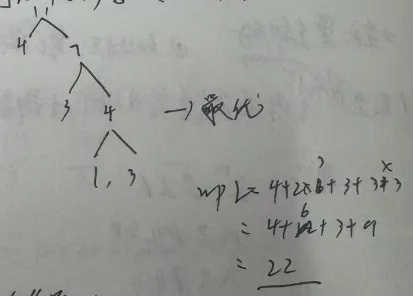 11
4 7
3 4 → 最优
1, 3
wpl = 4+2×3+3+3×3
= 4+6+3+9
= 22